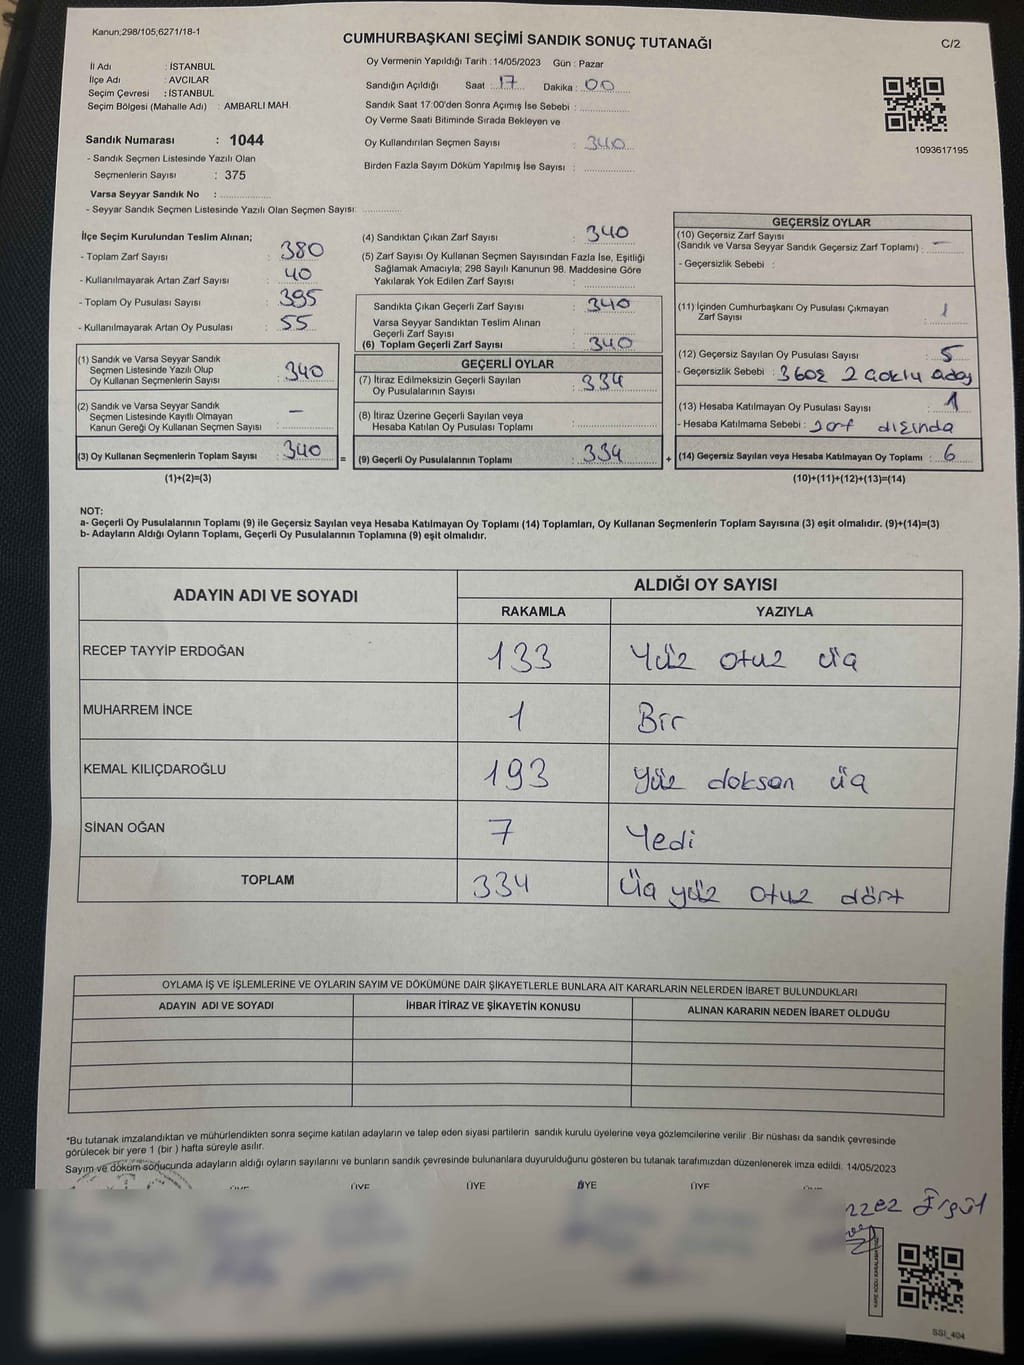 Kanun;298/105;6271/18-1
CUMHURBAŞKANI SEÇİMİ SANDIK SONUÇ TUTANAĞI
C/2
İl Adı : İSTANBUL
İlçe Adı : AVCILAR
Seçim Çevresi : İSTANBUL
Seçim Bölgesi (Mahalle Adı) : AMBARLI MAH.
Sandık Numarası : 1044
- Sandık Seçmen Listesinde Yazılı Olan
Seçmenlerin Sayısı : 375
Varsa Seyyar Sandık No :
- Seyyar Sandık Seçmen Listesinde Yazılı Olan Seçmen Sayısı:
Oy Vermenin Yapıldığı Tarih :14/05/2023 Gün : Pazar
Sandığın Açıldığı Saat : 17 Dakika : 00
Sandık Saat 17:00'den Sonra Açımış İse Sebebi :
Oy Verme Saati Bitiminde Sırada Bekleyen ve
Oy Kullandırılan Seçmen Sayısı : 340
Birden Fazla Sayım Döküm Yapılmış İse Sayısı :
1093617195
İlçe Seçim Kurulundan Teslim Alınan;
- Toplam Zarf Sayısı : 380
- Kullanılmayarak Artan Zarf Sayısı : 40
- Toplam Oy Pusulası Sayısı : 395
- Kullanılmayarak Artan Oy Pusulası : 55
(1) Sandık ve Varsa Seyyar Sandık
Seçmen Listesinde Yazılı Olup
Oy Kullanan Seçmenlerin Sayısı : 340
(2) Sandık ve Varsa Seyyar Sandık
Seçmen Listesinde Kayıtlı Olmayan
Kanun Gereği Oy Kullanan Seçmen Sayısı : —
(3) Oy Kullanan Seçmenlerin Toplam Sayısı : 340
(1)+(2)=(3)
=
(4) Sandıktan Çıkan Zarf Sayısı : 340
(5) Zarf Sayısı Oy Kullanan Seçmen Sayısından Fazla İse, Eşitliği
Sağlamak Amacıyla; 298 Sayılı Kanunun 98. Maddesine Göre
Yakılarak Yok Edilen Zarf Sayısı :
Sandıkta Çıkan Geçerli Zarf Sayısı : 340
Varsa Seyyar Sandıktan Teslim Alınan
Geçerli Zarf Sayısı :
(6) Toplam Geçerli Zarf Sayısı : 340
GEÇERLİ OYLAR
(7) İtiraz Edilmeksizin Geçerli Sayılan
Oy Pusulalarının Sayısı : 334
(8) İtiraz Üzerine Geçerli Sayılan veya
Hesaba Katılan Oy Pusulası Toplamı :
(9) Geçerli Oy Pusulalarının Toplamı : 334
+
GEÇERSİZ OYLAR
(10) Geçersiz Zarf Sayısı
(Sandık ve Varsa Seyyar Sandık Geçersiz Zarf Toplamı) : —
- Geçersizlik Sebebi :
(11) İçinden Cumhurbaşkanı Oy Pusulası Çıkmayan
Zarf Sayısı : 1
(12) Geçersiz Sayılan Oy Pusulası Sayısı : 5
- Geçersizlik Sebebi : 3 boş 2 çoklu aday
(13) Hesaba Katılmayan Oy Pusulası Sayısı : 1
- Hesaba Katılmama Sebebi : zarf dışında
(14) Geçersiz Sayılan veya Hesaba Katılmayan Oy Toplamı : 6
(10)+(11)+(12)+(13)=(14)
NOT:
a- Geçerli Oy Pusulalarının Toplamı (9) ile Geçersiz Sayılan veya Hesaba Katılmayan Oy Toplamı (14) Toplamları, Oy Kullanan Seçmenlerin Toplam Sayısına (3) eşit olmalıdır. (9)+(14)=(3)
b- Adayların Aldığı Oyların Toplamı, Geçerli Oy Pusulalarının Toplamına (9) eşit olmalıdır.
ADAYIN ADI VE SOYADI
ALDIĞI OY SAYISI
RAKAMLA YAZIYLA
RECEP TAYYİP ERDOĞAN 133 Yüz otuz üç
MUHARREM İNCE 1 Bir
KEMAL KILIÇDAROĞLU 193 yüz doksan üç
SİNAN OĞAN 7 Yedi
TOPLAM 334 Üç yüz otuz dört
OYLAMA İŞ VE İŞLEMLERİNE VE OYLARIN SAYIM VE DÖKÜMÜNE DAİR ŞİKAYETLERLE BUNLARA AİT KARARLARIN NELERDEN İBARET BULUNDUKLARI
ADAYIN ADI VE SOYADI İHBAR İTİRAZ VE ŞİKAYETİN KONUSU ALINAN KARARIN NEDEN İBARET OLDUĞU
*Bu tutanak imzalandıktan ve mühürlendikten sonra seçime katılan adayların ve talep eden siyasi partilerin sandık kurulu üyelerine veya gözlemcilerine verilir .Bir nüshası da sandık çevresinde
görülecek bir yere 1 (bir ) hafta süreyle asılır.
Sayım ve döküm sonucunda adayların aldığı oyların sayılarını ve bunların sandık çevresinde bulunanlara duyurulduğunu gösteren bu tutanak tarafımızdan düzenlenerek imza edildi. 14/05/2023
ÜYE ÜYE ÜYE ÜYE
SSI_404